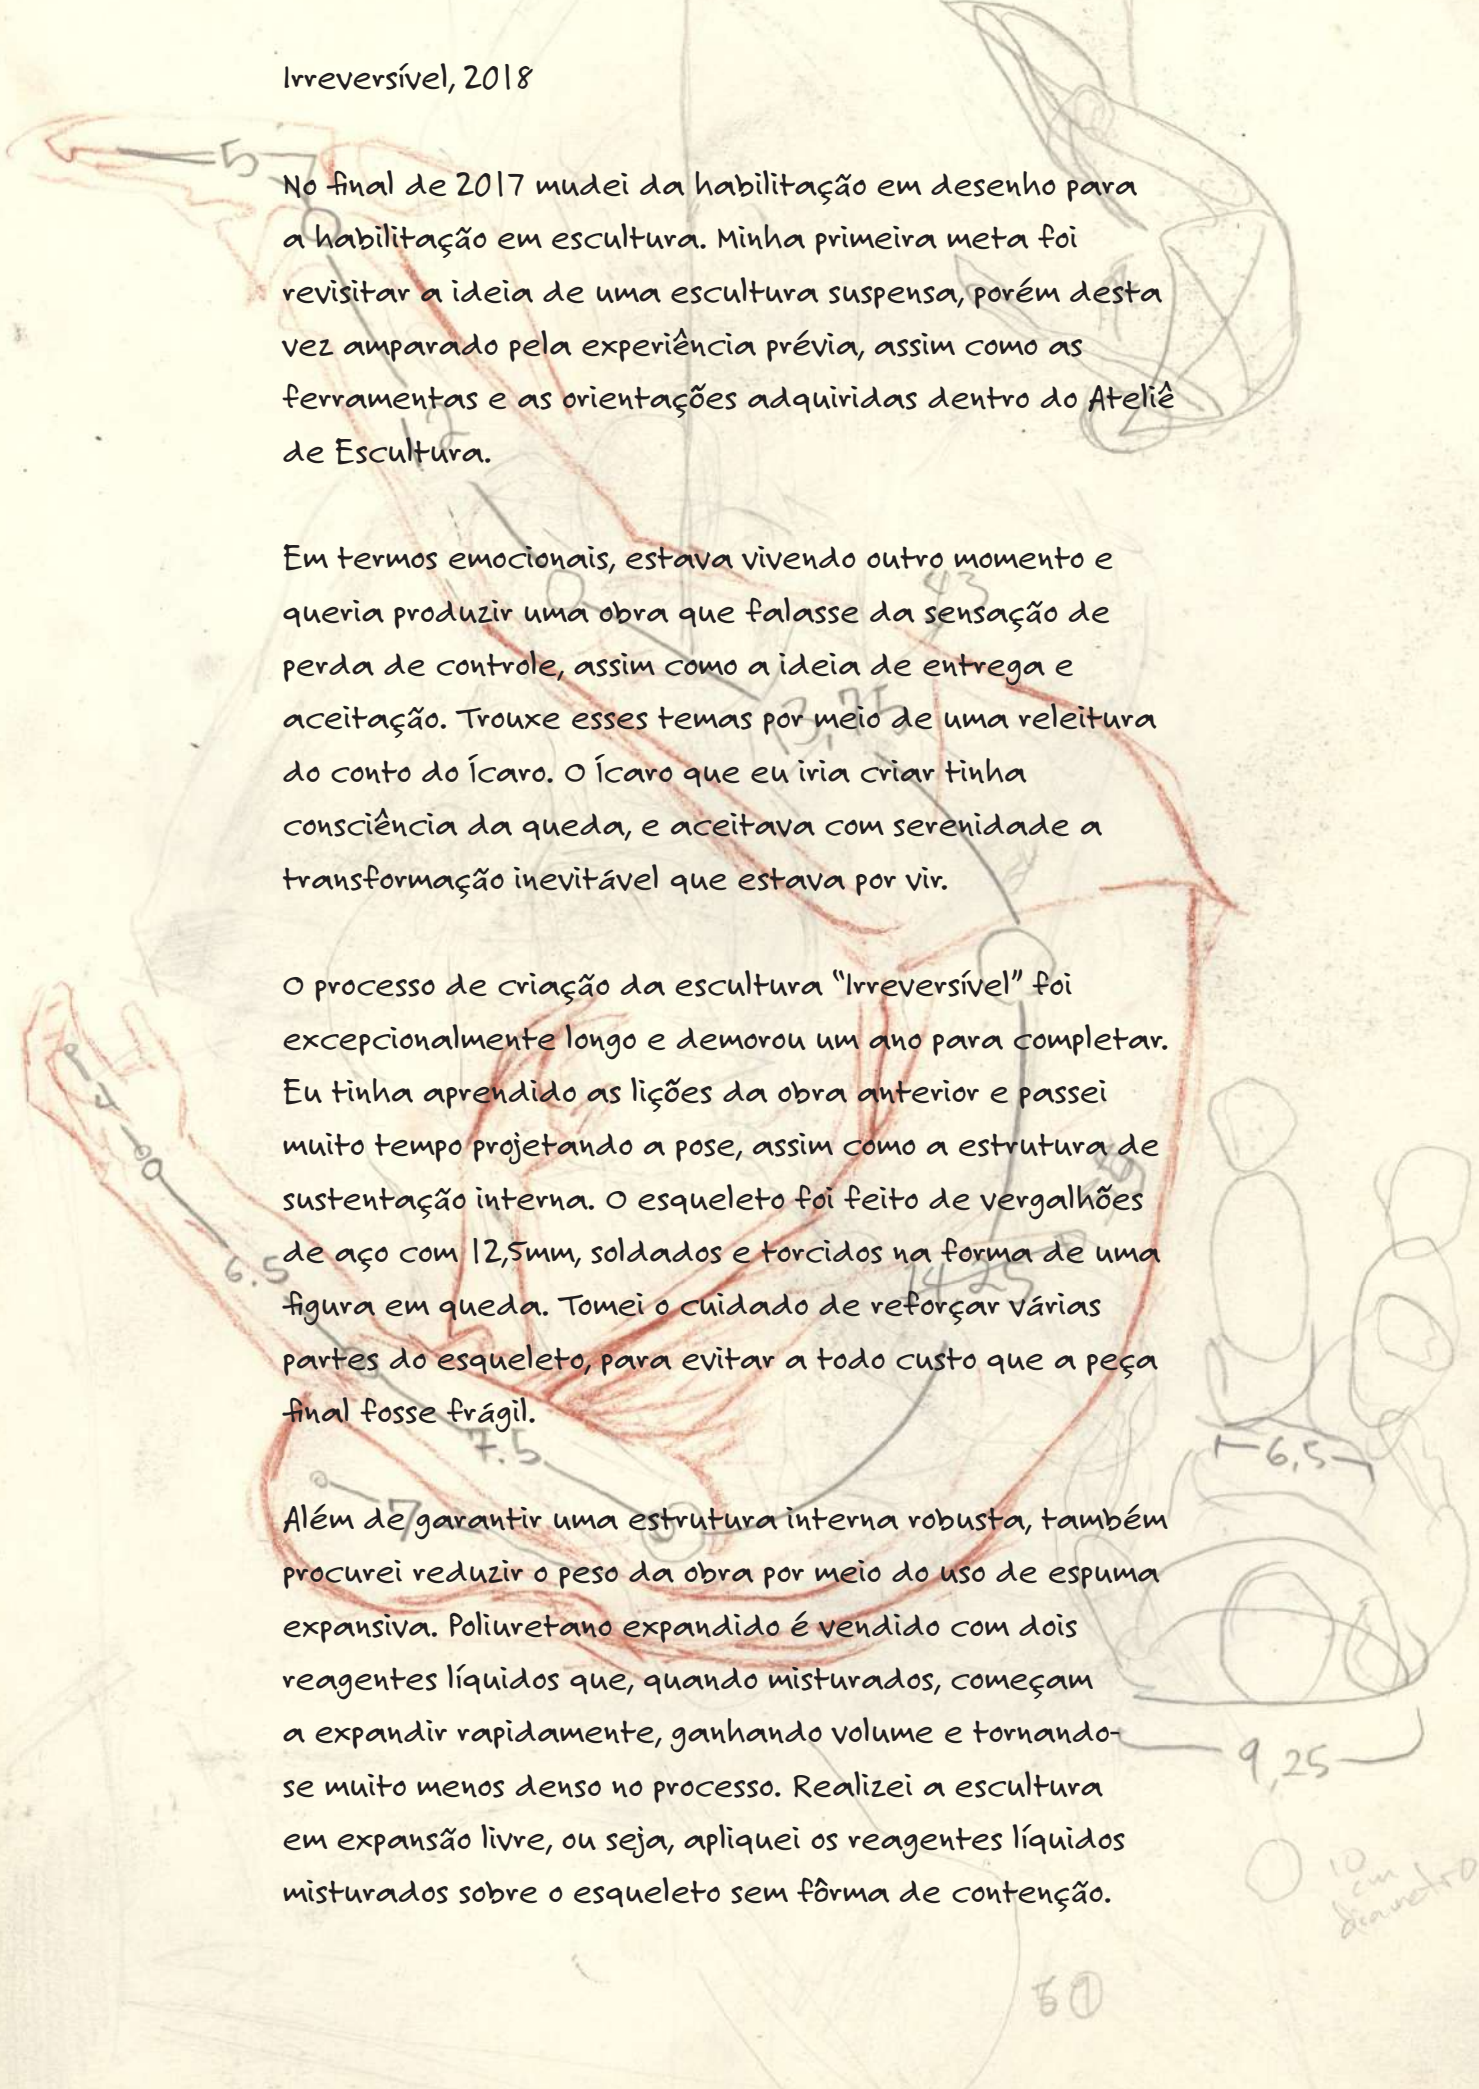 Irreversível, 2018
No final de 2017 mudei da habilitação em desenho para
a habilitação em escultura. Minha primeira meta foi
revisitar a ideia de uma escultura suspensa, porém desta
vez amparado pela experiência prévia, assim como as
ferramentas e as orientações adquiridas dentro do Ateliê
de Escultura.
Em termos emocionais, estava vivendo outro momento e
queria produzir uma obra que falasse da sensação de
perda de controle, assim como a ideia de entrega e
aceitação. Trouxe esses temas por meio de uma releitura
do conto do Ícaro. O Ícaro que eu iria criar tinha
consciência da queda, e aceitava com serenidade a
transformação inevitável que estava por vir.
O processo de criação da escultura “Irreversível” foi
excepcionalmente longo e demorou um ano para completar.
Eu tinha aprendido as lições da obra anterior e passei
muito tempo projetando a pose, assim como a estrutura de
sustentação interna. O esqueleto foi feito de vergalhões
de aço com 12,5mm, soldados e torcidos na forma de uma
figura em queda. Tomei o cuidado de reforçar várias
partes do esqueleto, para evitar a todo custo que a peça
final fosse frágil.
Além de garantir uma estrutura interna robusta, também
procurei reduzir o peso da obra por meio do uso de espuma
expansiva. Poliuretano expandido é vendido com dois
reagentes líquidos que, quando misturados, começam
a expandir rapidamente, ganhando volume e tornando-
se muito menos denso no processo. Realizei a escultura
em expansão livre, ou seja, apliquei os reagentes líquidos
misturados sobre o esqueleto sem fôrma de contenção.
5
12
43
13,75
4
6.5
14.25
7.5
7
6,5
9,25
10
cm
diametro